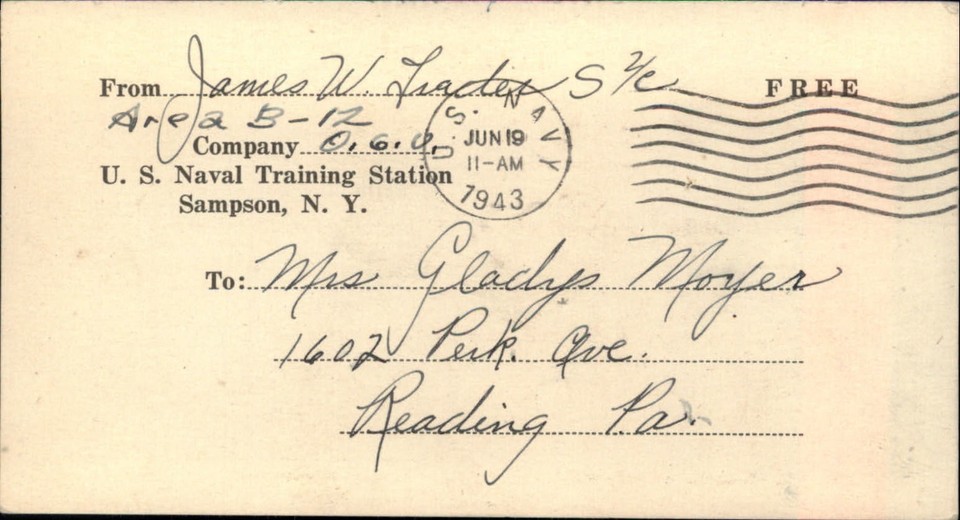 From James W. Trader S 2/c
FREE
Area B-12
Company O.G.U.
U. S. Naval Training Station
Sampson, N. Y.
U.S. NAVY
JUN 19
11-AM
1943
To: Mrs Gladys Moyer
1602 Perk. Ave.
Reading Pa.